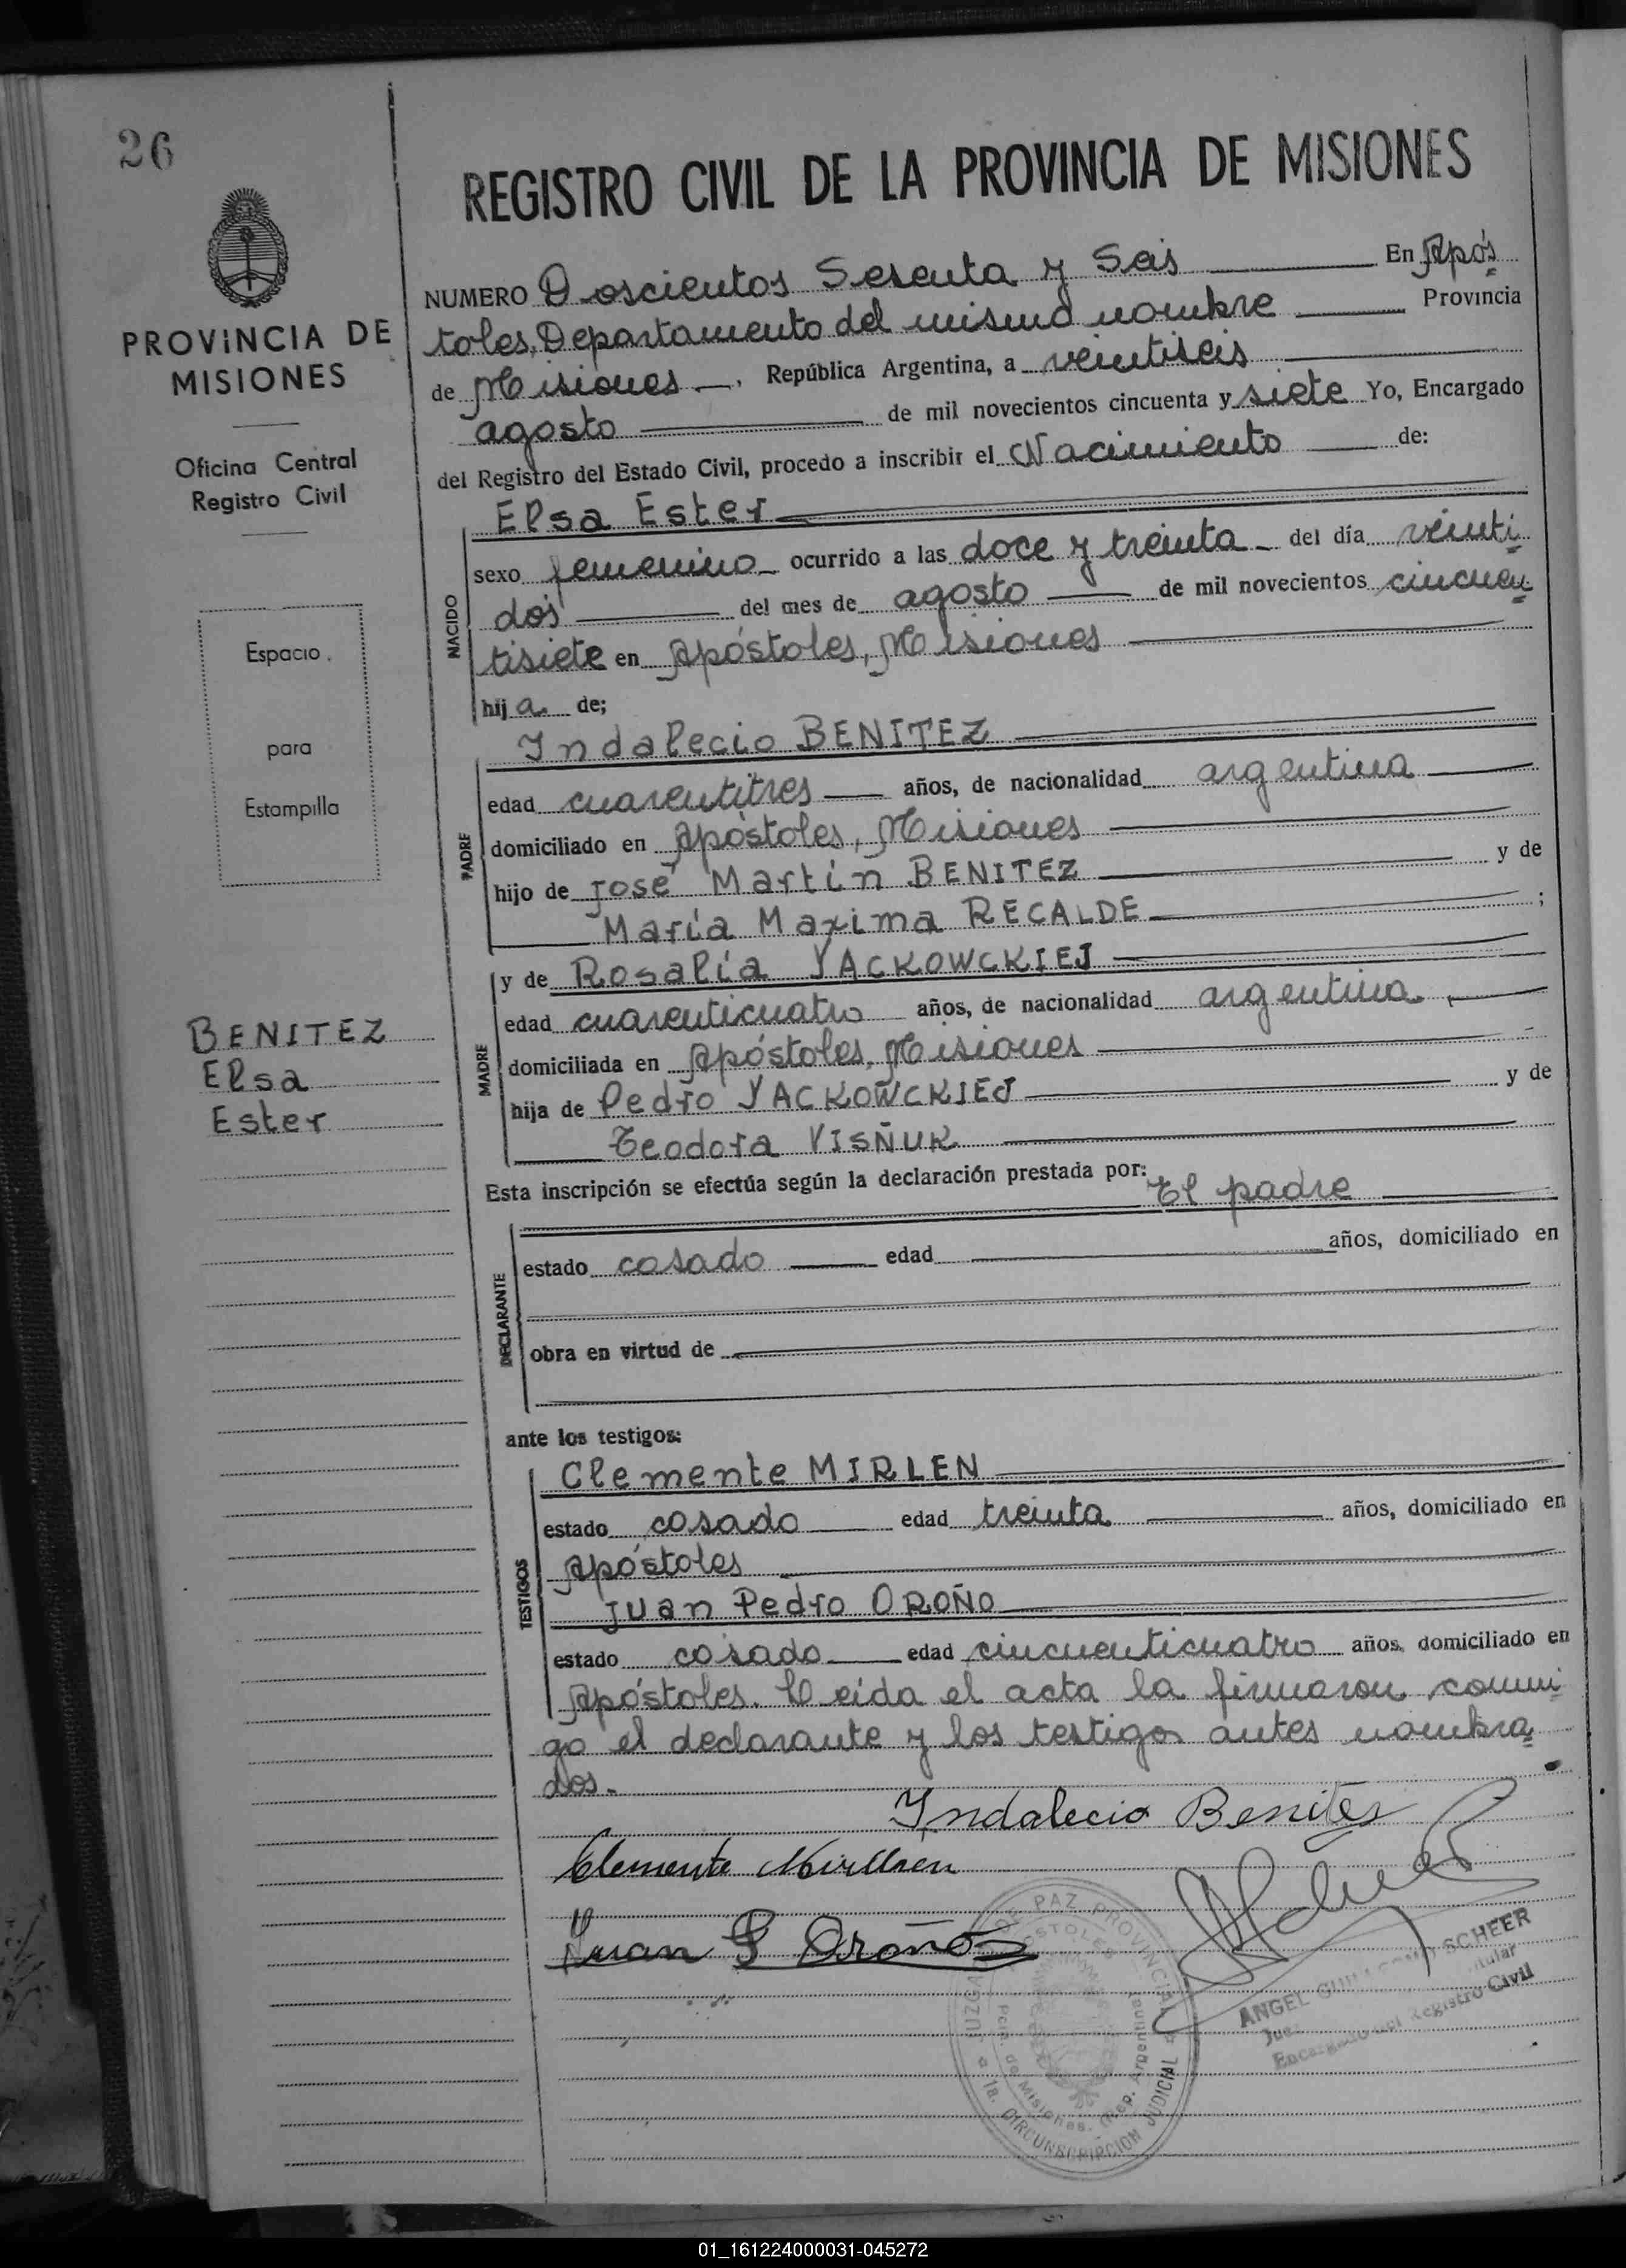 26
REGISTRO CIVIL DE LA PROVINCIA DE MISIONES
PROVINCIA DE
MISIONES
Oficina Central
Registro Civil
Espacio
para
Estampilla
BENITEZ
Elsa
Ester
NUMERO Doscientos Sesenta y Seis En Após
toles, Departamento del mismo nombre Provincia
de Misiones, República Argentina, a veintiseis
agosto de mil novecientos cincuenta y siete Yo, Encargado
del Registro del Estado Civil, procedo a inscribir el Nacimiento de:
Elsa Ester
NACIDO
sexo femenino ocurrido a las doce y treinta del día veinti
dós del mes de agosto de mil novecientos cincuen
tisiete en Apóstoles, Misiones
hija de;
Indalecio BENITEZ
PADRE
edad cuarentitres años, de nacionalidad argentina
domiciliado en Apóstoles, Misiones
hijo de José Martín BENITEZ y de
María Maxima RECALDE ;
y de Rosalía YACKOWCKIEJ
MADRE
edad cuarenticuatro años, de nacionalidad argentina
domiciliada en Apóstoles, Misiones
hija de Pedro YACKOWCKIEJ y de
Teodora VISÑUK
Esta inscripción se efectúa según la declaración prestada por: El padre
DECLARANTE
estado casado edad años, domiciliado en
obra en virtud de
ante los testigos:
Clemente MIRLEN
TESTIGOS
estado casado edad treinta años, domiciliado en
Apóstoles
Juan Pedro OROÑO
estado casado edad cincuenticuatro años, domiciliado en
Apóstoles. Leída el acta la firmaron conmi
go el declarante y los testigos antes nombra
dos.
Indalecio Benitez
Clemente
Juan P Oroño
JUZGADO DE PAZ PROVINCIAL
APOSTOLES
Pcia. de Misiones. Rep. Argentina
1a. CIRCUNSCRIPCION JUDICIAL
ANGEL SCHEER
Juez Titular
Encargado del Registro Civil
01_161224000031-045272